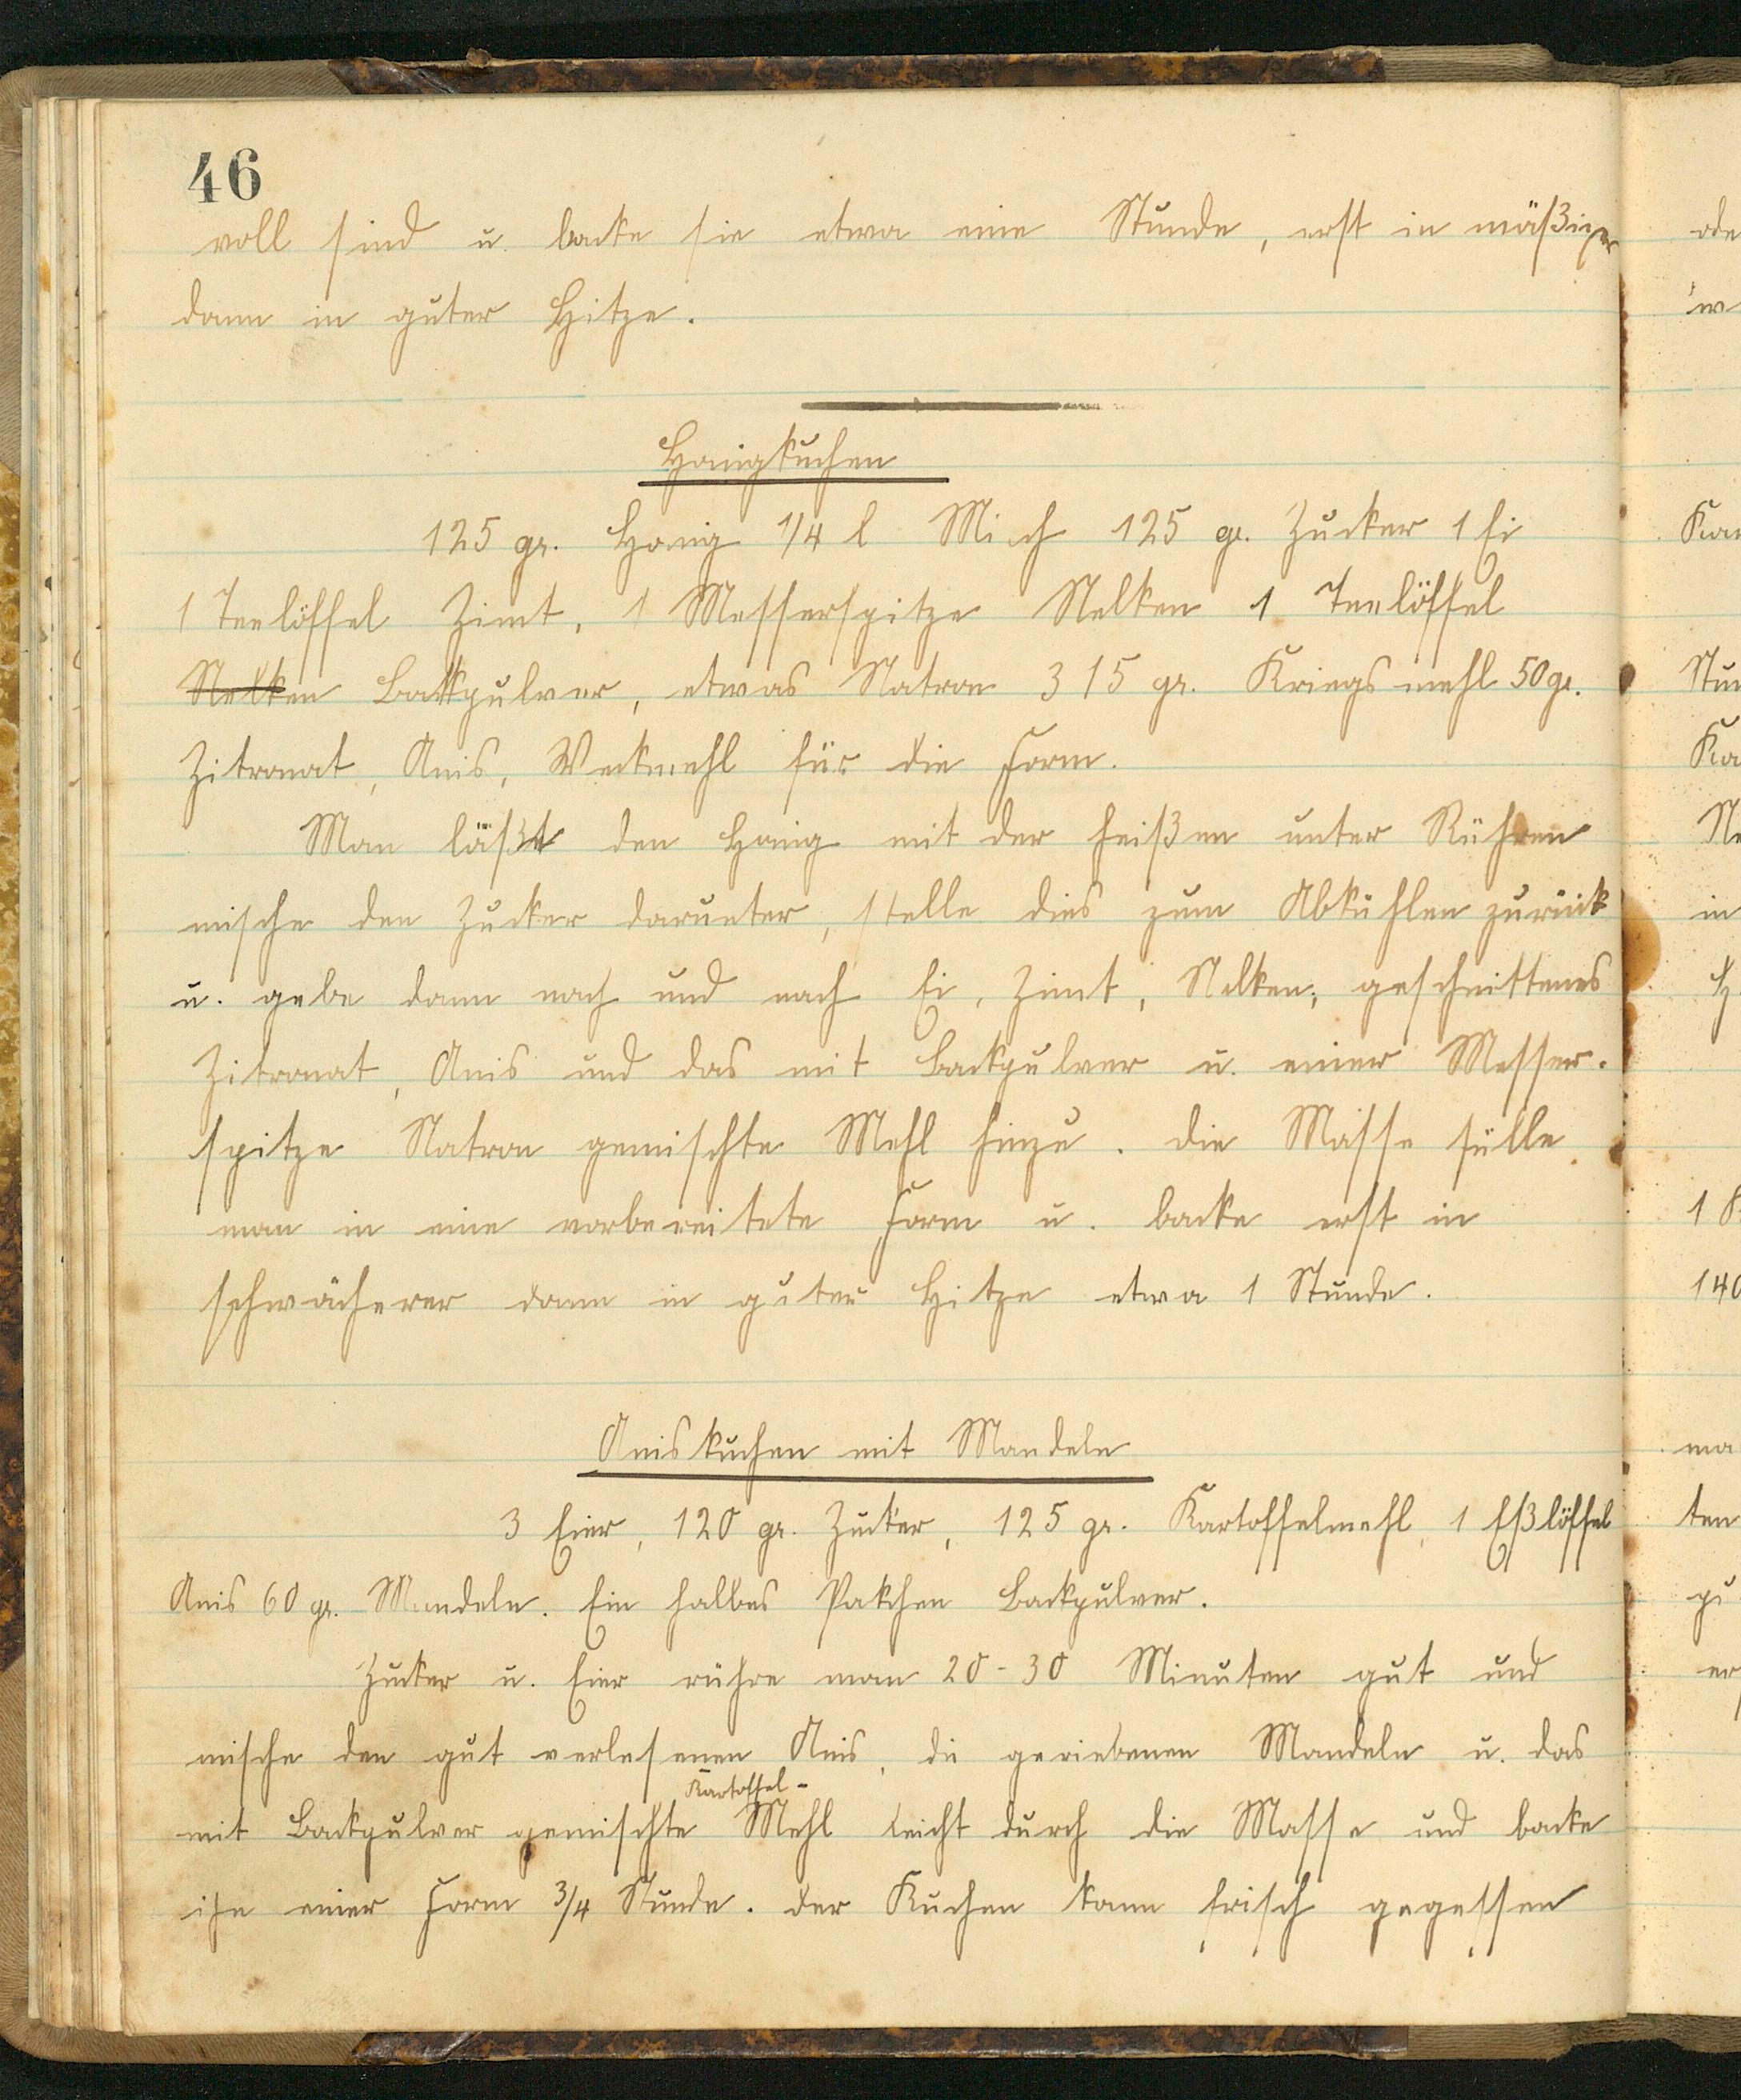 46
voll sind u. backe sie etwa eine Stunde, erst in mäßiger
dann in guter Hitze.
Honigkuchen
125 gr. Honig 1/4 l Milch 125 gr. Zucker 1 Ei
1 Teelöffel Zimt, 1 Messerspitze Nelken 1 Teelöffel
Nelken Backpulver, etwas Natron 315 gr. Kriegsmehl 50 gr.
Zitronat, Anis, Weckmehl für die Form.
Man läßt den Honig mit der heißen unter Rühren
mische den Zucker darunter, stelle dies zum Abkühlen zurück
u. gebe dann nach und nach Ei, Zimt, Nelken, geschnittenes
Zitronat, Anis und das mit Backpulver u. einer Messer-
spitze Natron gemischte Mehl hinzu. Die Masse fülle
man in eine vorbereitete Form u. backe erst in
schwächerer dann in guter Hitze etwa 1 Stunde.
Aniskuchen mit Mandeln
3 Eier, 120 gr. Zucker, 125 gr. Kartoffelmehl, 1 Eßlöffel
Anis 60 gr. Mandeln. Ein halbes Pakchen Backpulver.
Zucker u. Eier rühre man 20-30 Minuten gut und
mische den gut verlesenen Anis, die geriebenen Mandeln u. das
Kartoffel-
mit Backpulver gemischte Mehl leicht durch die Masse und backe
ihn einer Form 3/4 Stunde. Der Kuchen kann frisch gegessen